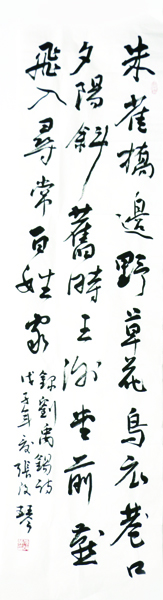 朱雀橋邊野草花鳥衣巷口
夕陽斜舊時王謝堂前燕
飛入尋常百姓家
錄劉禹錫詩
戊子年夏張俊琴